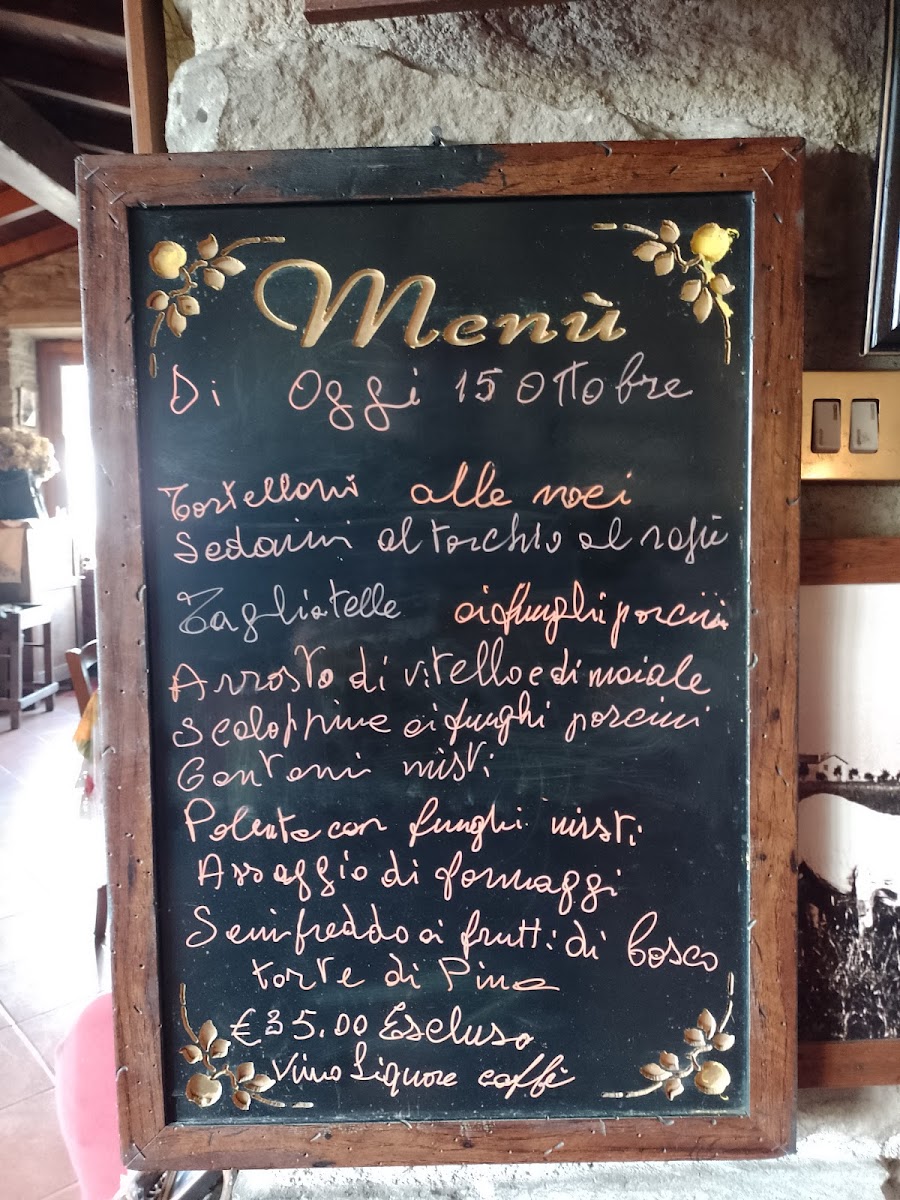 Menù
Di Oggi 15 Ottobre
Tortelloni alle noci
Sedanini al torchio al ragù
Tagliatelle ai funghi porcini
Arrosto di vitello e di maiale
Scaloppine ai funghi porcini
Contorni misti
Polenta con funghi misti
Assaggio di formaggi
Semifreddo ai frutti di bosco
torte di Pina
€ 35.00 Escluso
Vino Liquore caffè